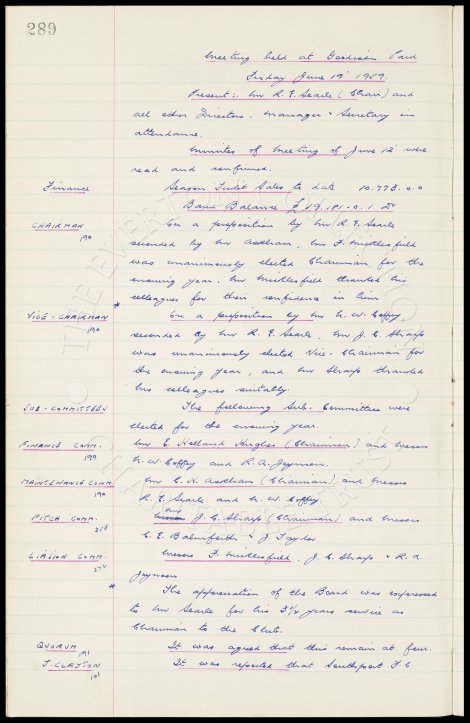 289
Meeting held at Goodison Park
Friday June 19' 1959.
Present:. Mr R. E. Searle (Chair) and
all other Directors. Manager & Secretary in
attendance.
Minutes of Meeting of June 12' were
read and confirmed.
Finance Season Ticket Sales to date 10.773.0.0
Bank Balance £49.181-0.1 Dr
CHAIRMAN 190 On a proposition by Mr R. E. Searle
seconded by Mr Askham, Mr F. Micklesfield
was unanimously elected Chairman for the
ensuing year. Mr Micklesfield thanked his
colleagues for their confidence in him.
VICE-CHAIRMAN 190 * On a proposition by Mr N. W. Coffey
seconded by Mr R. E. Searle, Mr J. C. Sharp
was unanimously elected Vice-Chairman for
the ensuing year, and Mr Sharp thanked
his colleagues suitably.
SUB-COMMITTEES The following Sub. Committees were
elected for the ensuing year.
FINANCE COMM. 190 Mr E Holland Hughes (Chairman) and Messrs
N. W Coffey and R. A. Joynson.
MAINTENANCE COMM 190 Mr C. H. Askham (Chairman) and Messrs
R. E. Searle and N. W Coffey
PITCH COMM. Mr J. C. Sharp (Chairman) and Messrs
C. E. Balmforth & J. Taylor
LIAISON COMM. Messrs F. Micklesfield. J. C. Sharp & R. A.
Joynson
* The appreciation of the Board was expressed
to Mr Searle for his 3½ years service as
Chairman to the Club.
QUORUM 191 It was agreed that this remain at four.
J. CLAYTON 101 It was reported that Southport F.C